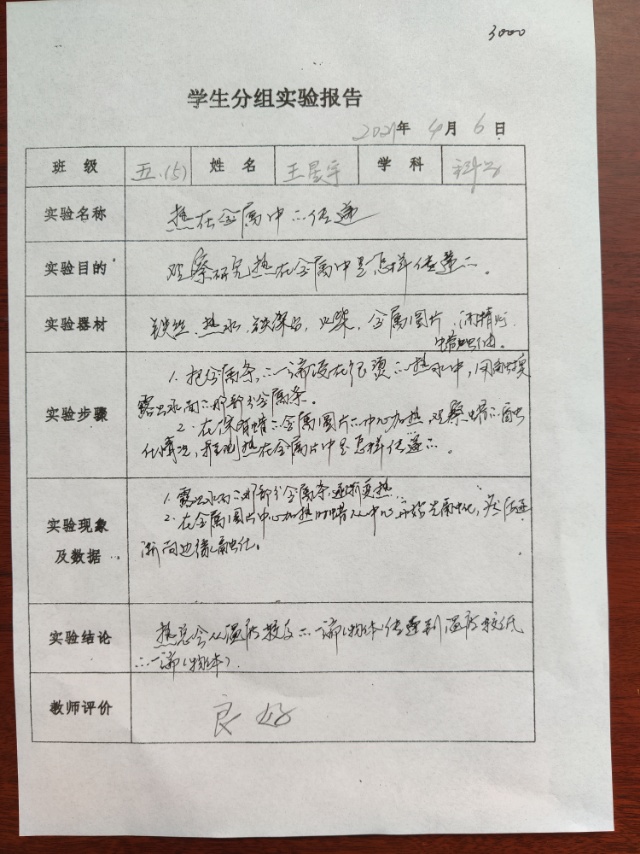 3000
学生分组实验报告
2021年 4月 6日
班级 五.(5) 姓名 王星宇 学科 科学
实验名称 热在金属中的传递
实验目的 观察研究热在金属中是怎样传递的。
实验器材 铁丝、热水、铁架台、火柴、金属圆片、酒精灯、
蜡
实验步骤 1. 把金属条的一端浸在很烫的热水中,用手触摸
露出水面的那部分金属条。
2. 在涂有蜡的金属圆片的中心加热,观察蜡的融
化情况,推测热在金属片中是怎样传递的。
实验现象及数据 1. 露出水面的那部分金属条逐渐变热。
2. 在金属圆片中心加热时蜡从中心开始先融化,然后逐
渐向边缘融化。
实验结论 热总会从温度较高的一端(物体)传递到温度较低
的一端(物体)。
教师评价 良好